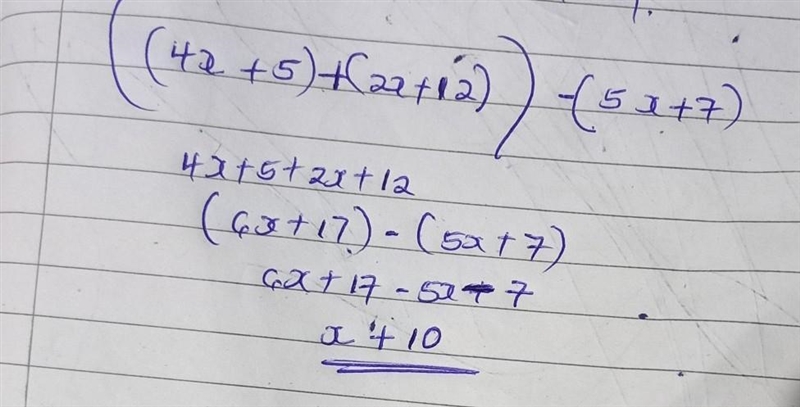 ((4x+5)+(2x+12))-(5x+7)
4x+5+2x+12
(6x+17)-(5x+7)
6x+17-5x-7
x+10